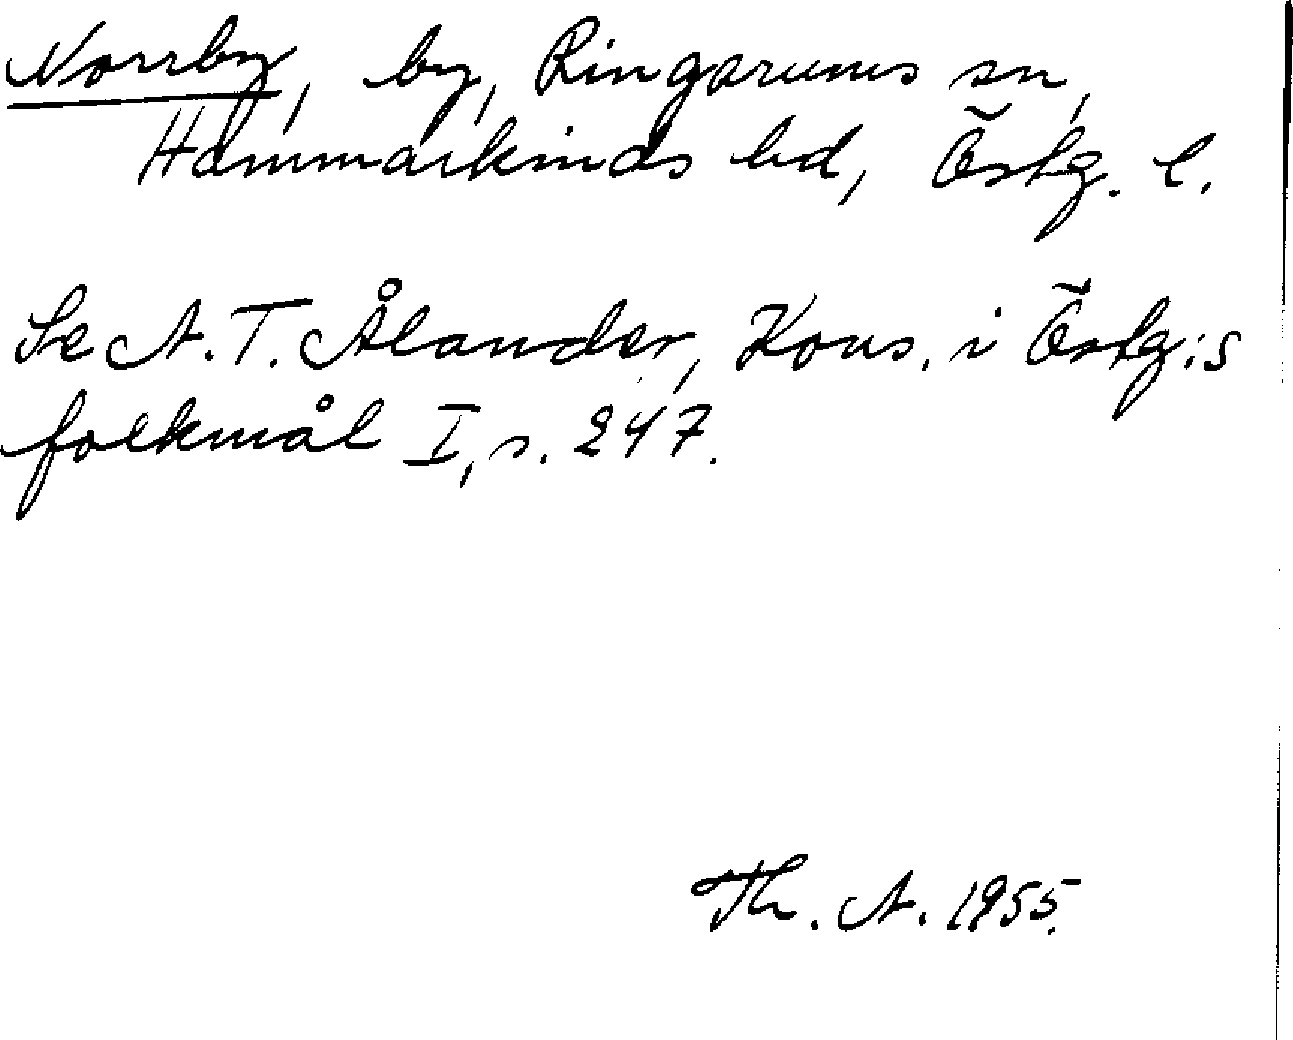 Norrby, by, Ringarums sn,
Hammarkinds hd, Östg. l.
Se A. T. Ålander, Kons. i Östg:s
folkmål I, s. 247.
Th. A. 1955.